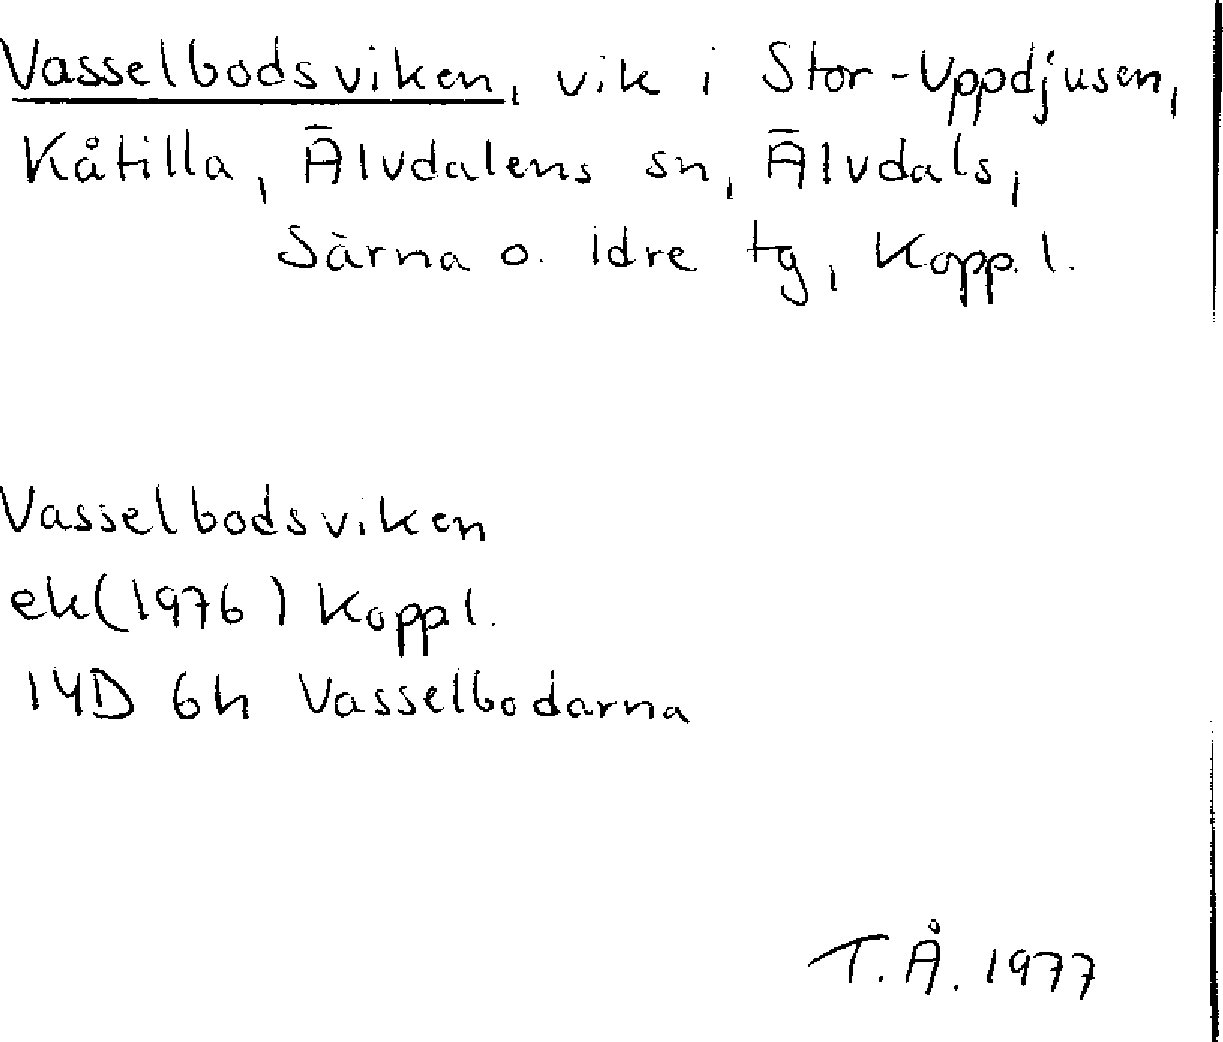 Vasselbodsviken, vik i Stor-Uppdjusen,
Kåtilla, Älvdalens sn, Älvdals,
Särna o. Idre tg, Kopp. l.
Vasselbodsviken
ek(1976) Koppl.
14D 6h Vasselbodarna
T.Å. 1977